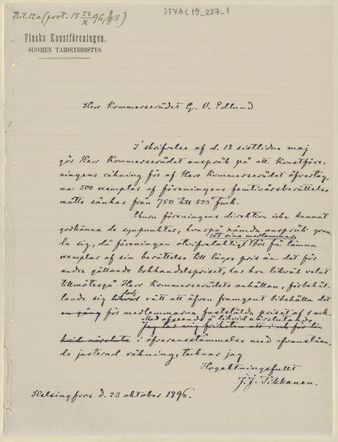 Bil. 12a (prot. 18 22/X 96, § 8)
STYA C19_227_1
Finska Konstföreningen.
SUOMEN TAIDEYHDISTYS.
Herr Kommerserådet G. W. Edlund
I skrifvelse af d. 18 sistlidne maj
gör Herr Kommerserådet anspråk på att konstföre-
ningens räkning för af Herr Kommerserådet öfvertag-
na 500 exemplar af föreningens festivårsberättelse
måtte sänkas från 750 till 500 fmk.
Churu föreningens direktion icke kunnat
godkänna de synpunkter, hvarpå nämda anspråk grun-
till sina medlemmar
da sig, då föreningen otvifvelaktigt bör få lämna
exemplar af sin berättelse till lägre pris än det för
andra gällande bokhandelspriset, har hon likväl velat
tillmötesgå Herr Kommerserådets anhållan, förbehål-
lande sig rätt att äfven framgent bibehålla det
en gång för medlemmarna fastställda priset af
Med afseende å likvid
Jag tar mig friheten att
i öfverensstämmelse med ofvanståen-
de justerad räkning, tecknar jag
Högaktningsfullt
J. J. Tikkanen.
Helsingfors d. 23 oktober 1896.